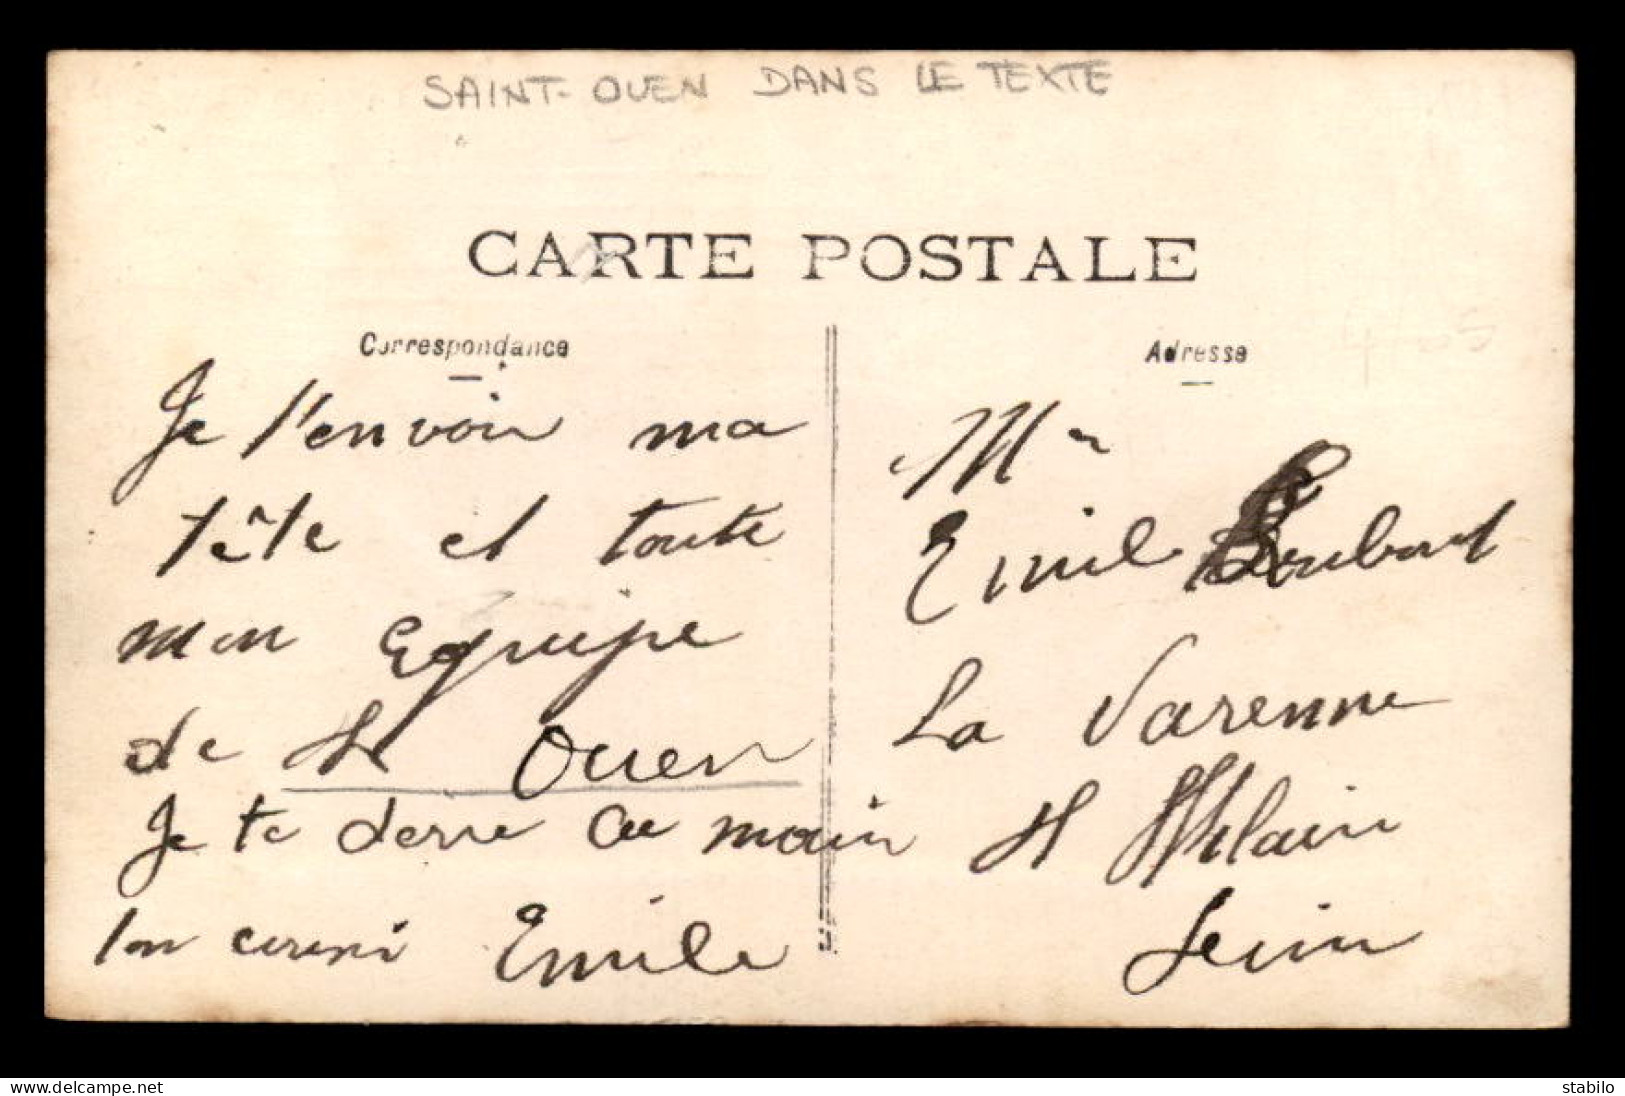 SAINT-OUEN DANS LE TEXTE
CARTE POSTALE
Correspondance
Je t'envoir ma
tête et toute
mon equipe
de St Ouen
Je te serre la main
ton
Emile
Adresse
Mr
Emil
La Varenne
St Hilain
Seine
www.delcampe.net
stabilo